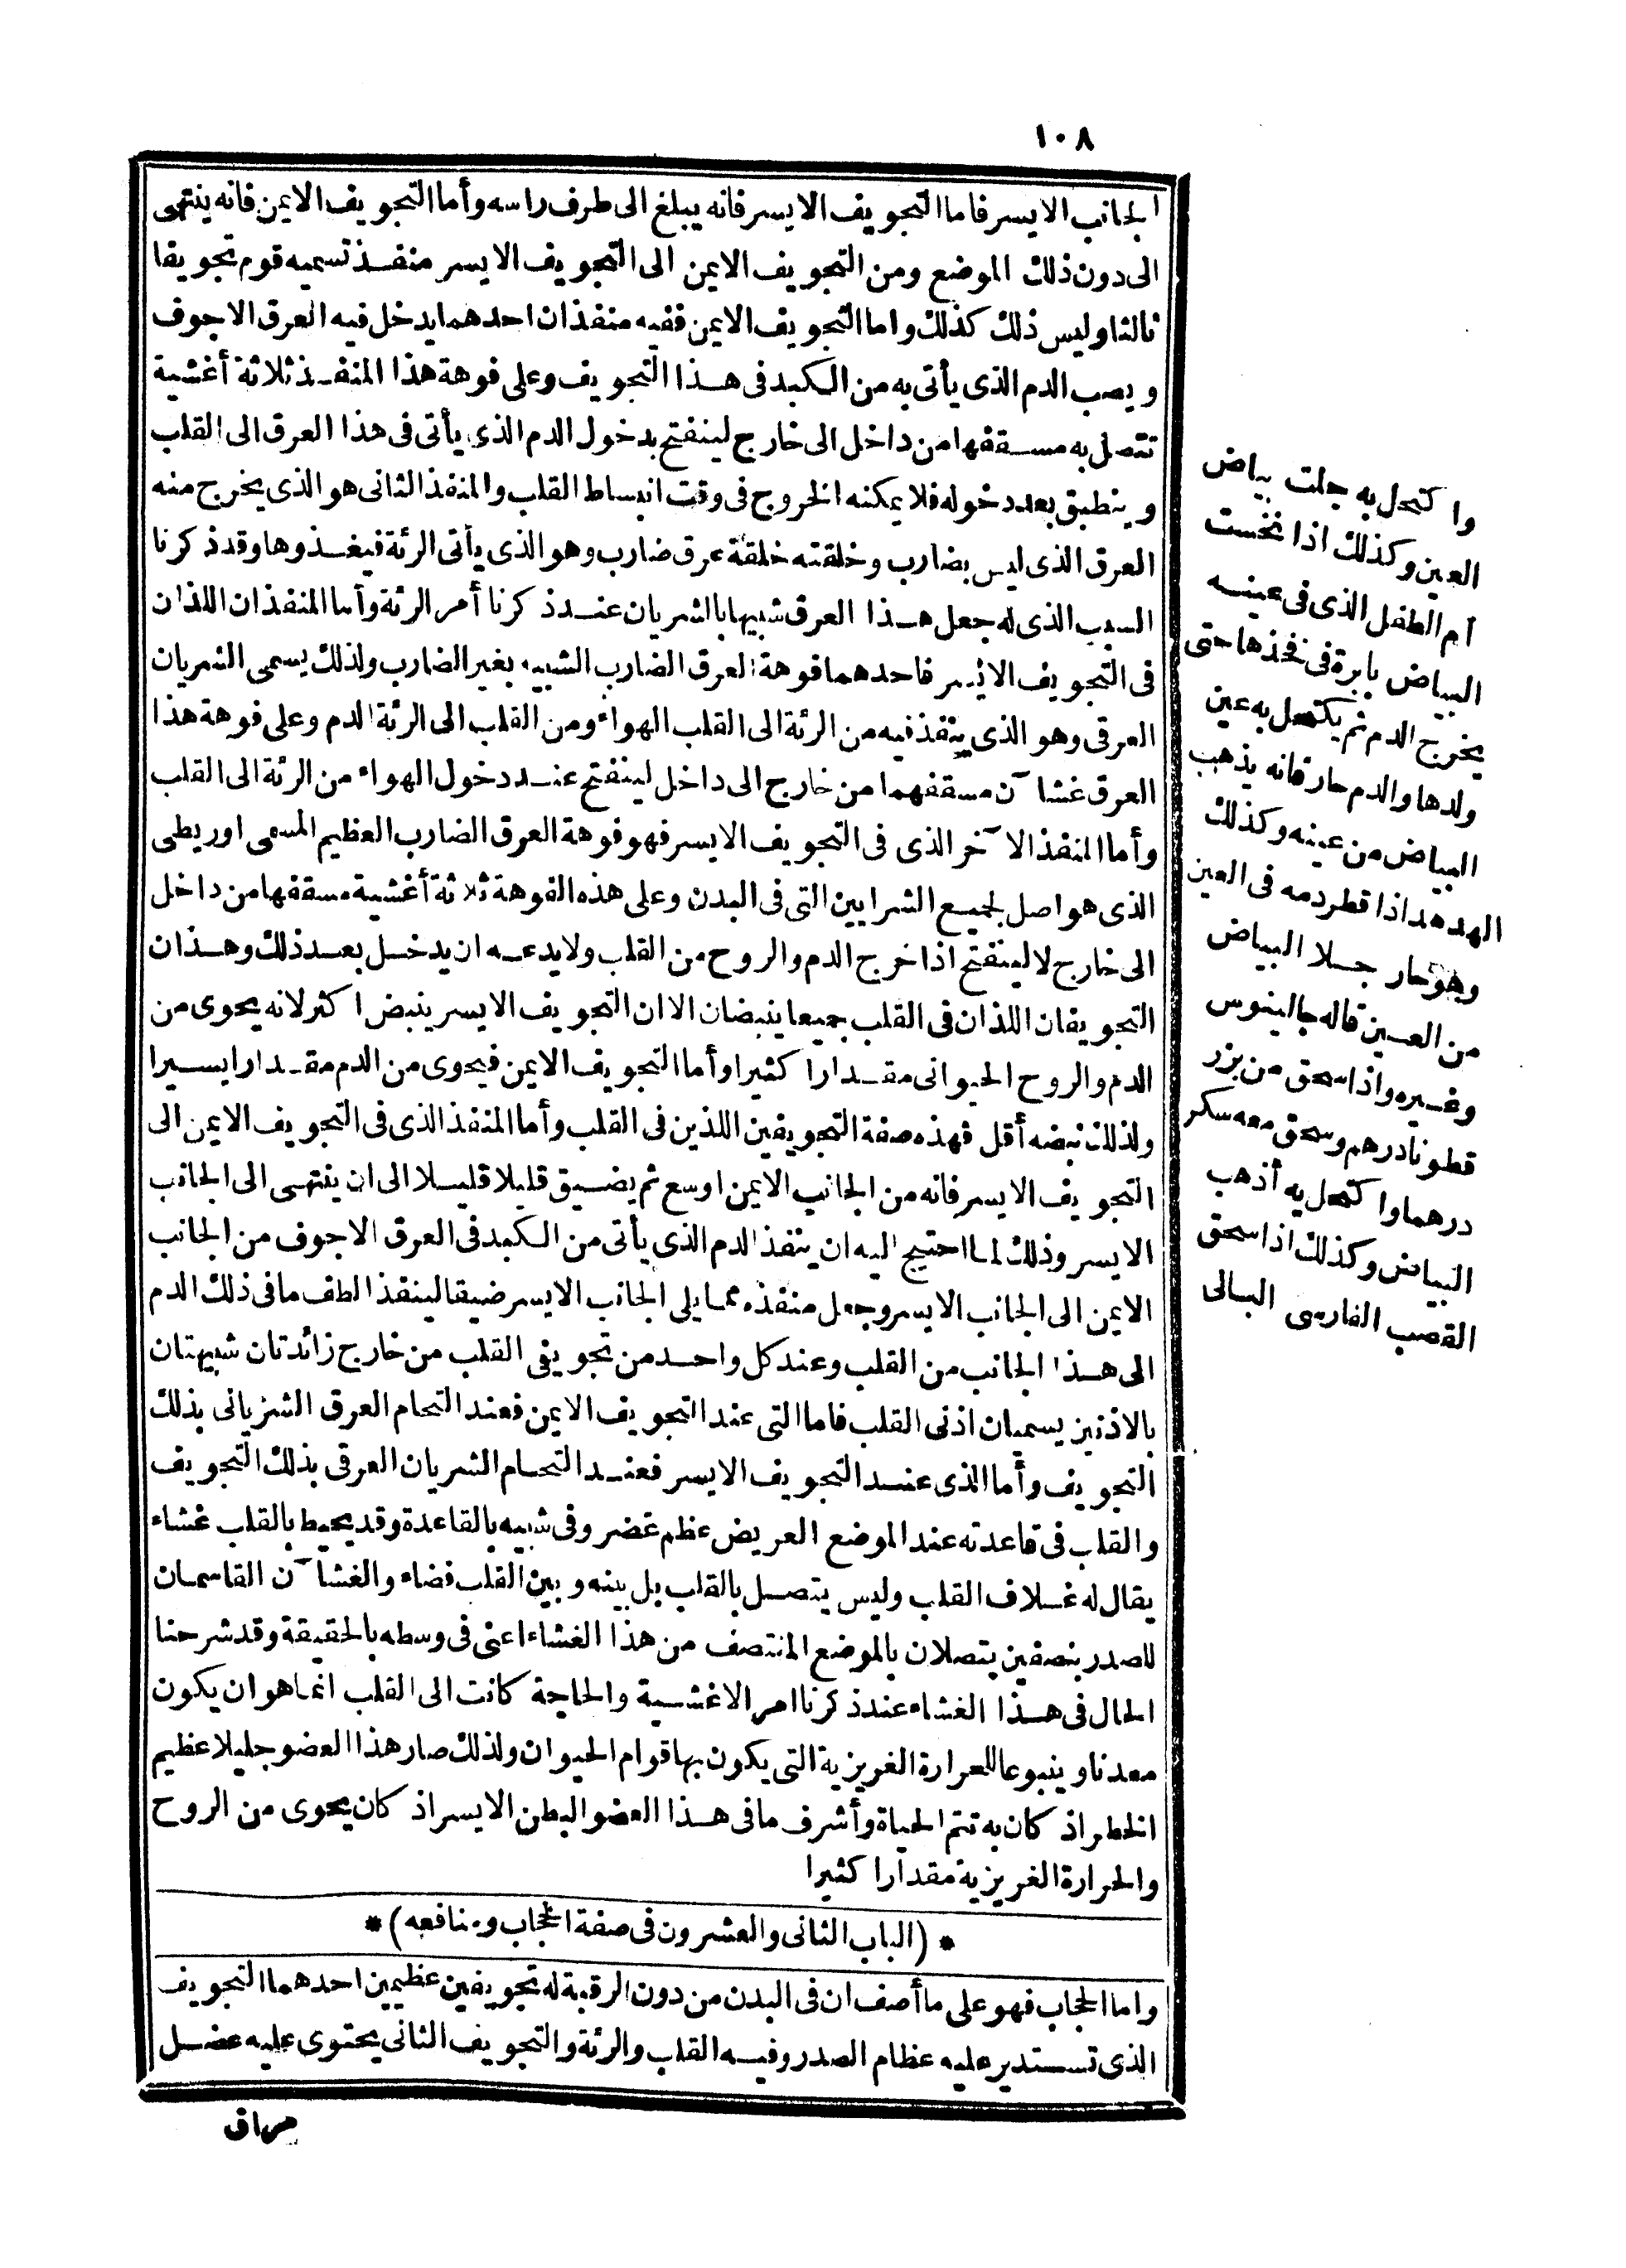 ١٠٨
الجانب الايسر فاما التجويف الايسر فانه يبلغ الى طرف راسه وأما التجويف الايمن فانه ينتهى
الى دون ذلك الموضع ومن التجويف الايمن الى التجويف الايسر منفذ تسميه قوم تجويفا
ثالثا وليس ذلك كذلك واما التجويف الايمن ففيه منفذان احدهما يدخل فيه العرق الاجوف
ويصب الدم الذى يأتى به من الكبد فى هذا التجويف وعلى فوهة هذا المنفذ ثلاثة أغشية
تتصل به مسقفها من داخل الى خارج لينفتح بدخول الدم الذى يأتى فى هذا العرق الى القلب
وينطبق بعد دخوله فلا يمكنه الخروج فى وقت انبساط القلب والمنفذ الثانى هو الذى يخرج منه
العرق الذى ليس بضارب وخلقته خلقة عرق ضارب وهو الذى يأتى الرئة فيغذوها وقد ذكرنا
السبب الذى له جعل هذا العرق شبيها بالشريان عند ذكرنا أمر الرئة وأما المنفذان اللذان
فى التجويف الايسر فاحدهما فوهة العرق الضارب الشبيه بغير الضارب ولذلك يسمى الشريان
العرقى وهو الذى ينفذ فيه من الرئة الى القلب الهواء ومن القلب الى الرئة الدم وعلى فوهة هذا
العرق غشا آن مسقفهما من خارج الى داخل لينفتح عند دخول الهواء من الرئة الى القلب
وأما المنفذ الا آخر الذى فى التجويف الايسر فهو فوهة العرق الضارب العظيم المسمى اوريطى
الذى هو اصل لجميع الشرايين التى فى البدن وعلى هذه الفوهة ثلاثة أغشية مسقفها من داخل
الى خارج لا لينفتح اذا خرج الدم والروح من القلب ولا يدعه ان يدخل بعد ذلك وهذان
التجويفان اللذان فى القلب جميعا ينبضان الا ان التجويف الايسر ينبض اكثر لانه يحوى من
الدم والروح الحيوانى مقدارا كثيرا وأما التجويف الايمن فيحوى من الدم مقدارا يسيرا
ولذلك نبضه أقل فهذه صفة التجويفين اللذين فى القلب وأما المنفذ الذى فى التجويف الايمن الى
التجويف الايسر فانه من الجانب الايمن اوسع ثم يضيق قليلا قليلا الى ان ينتهى الى الجانب
الايسر وذلك لما احتيج اليه ان ينفذ الدم الذى يأتى من الكبد فى العرق الاجوف من الجانب
الايمن الى الجانب الايسر وجعل منفذه مما يلى الجانب الايسر ضيقا لينفذ الطف ما فى ذلك الدم
الى هذا الجانب من القلب وعند كل واحد من تجويفى القلب من خارج زائدتان شبيهتان
بالاذنين يسميان اذنى القلب فاما التى عند التجويف الايمن فعند التحام العرق الشريانى بذلك
التجويف وأما الذى عند التجويف الايسر فعند التحام الشريان العرقى بذلك التجويف
والقلب فى قاعدته عند الموضع العريض عظم غضروفى شبيه بالقاعدة وقد يحيط بالقلب غشاء
يقال له غلاف القلب وليس يتصل بالقلب بل بينه وبين القلب فضاء والغشا آن القاسمان
للصدر بنصفين يتصلان بالموضع المنتصف من هذا الغشاء اعنى فى وسطه بالحقيقة وقد شرحنا
الحال فى هذا الغشاء عند ذكرنا امر الاغشية والحاجة كانت الى القلب انما هو ان يكون
معدنا وينبوعا للحرارة الغريزية التى يكون بها قوام الحيوان ولذلك صار هذا العضو جليلا عظيم
الخطر اذ كان به تتم الحياة وأشرف ما فى هذا العضو البطن الايسر اذ كان يحوى من الروح
والحرارة الغريزية مقدارا كثيرا
* (الباب الثانى والعشرون فى صفة الحجاب ومنافعه) *
واما الحجاب فهو على ما أصف ان فى البدن من دون الرقبة له تجويفين عظيمين احدهما التجويف
الذى تستدير عليه عظام الصدر وفيه القلب والرئة والتجويف الثانى يحتوى عليه عضل
مراق
واكتحل به جلت بياض
العين وكذلك اذا نخست
ام الطفل الذى فى عينه
البياض بابرة فى فخذها حتى
يخرج الدم ثم يكتحل به عين
ولدها والدم حار فانه يذهب
البياض من عينه وكذلك
الهدهد اذا قطر دمه فى العين
وهو حار جلا البياض
من العين قاله جالينوس
وغيره واذا سحق من بزر
قطونا درهم وسحق معه سكر
درهما واكتحل به أذهب
البياض وكذلك اذا سحق
القصب الفارسى البالى